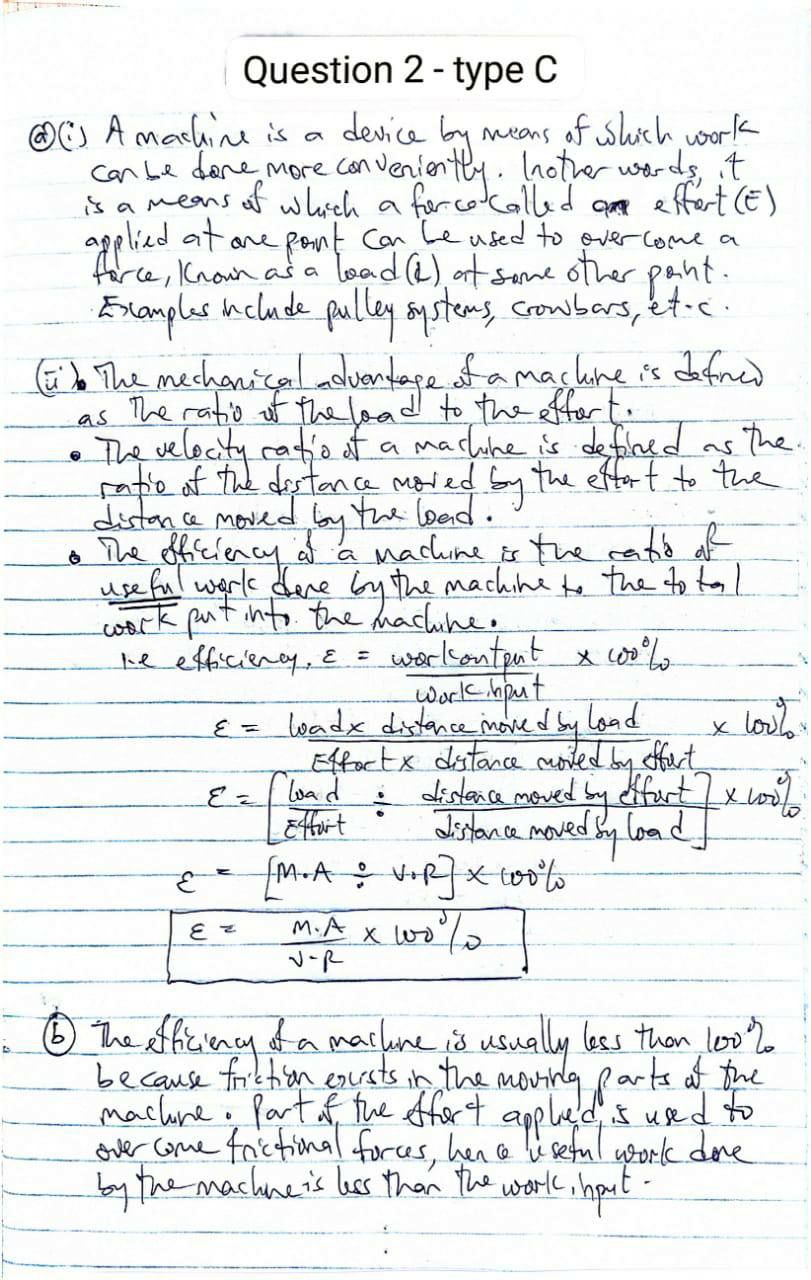 Question 2 - type C
(a)(i) A machine is a device by means of which work
can be done more conveniently. In other words, it
is a means of which a force called an effort (E)
applied at one point can be used to overcome a
force, known as a load (L) at some other point.
Examples include pulley systems, crowbars, et.c.
(ii) The mechanical advantage of a machine is defined
as the ratio of the load to the effort.
• The velocity ratio of a machine is defined as the
ratio of the distance moved by the effort to the
distance moved by the load.
• The efficiency of a machine is the ratio of
useful work done by the machine to the total
work put into the machine.
i.e efficiency, ε = work output × 100%
work input
ε = load × distance moved by load × 100%
Effort × distance moved by effort
ε = [load ÷ distance moved by effort] × 100%
Effort distance moved by load
ε = [M.A ÷ V.R] × 100%
ε = M.A × 100%
V.R
(b) The efficiency of a machine is usually less than 100%
because friction exists in the moving parts of the
machine. Part of the effort applied is used to
overcome frictional forces, hence useful work done
by the machine is less than the work input.